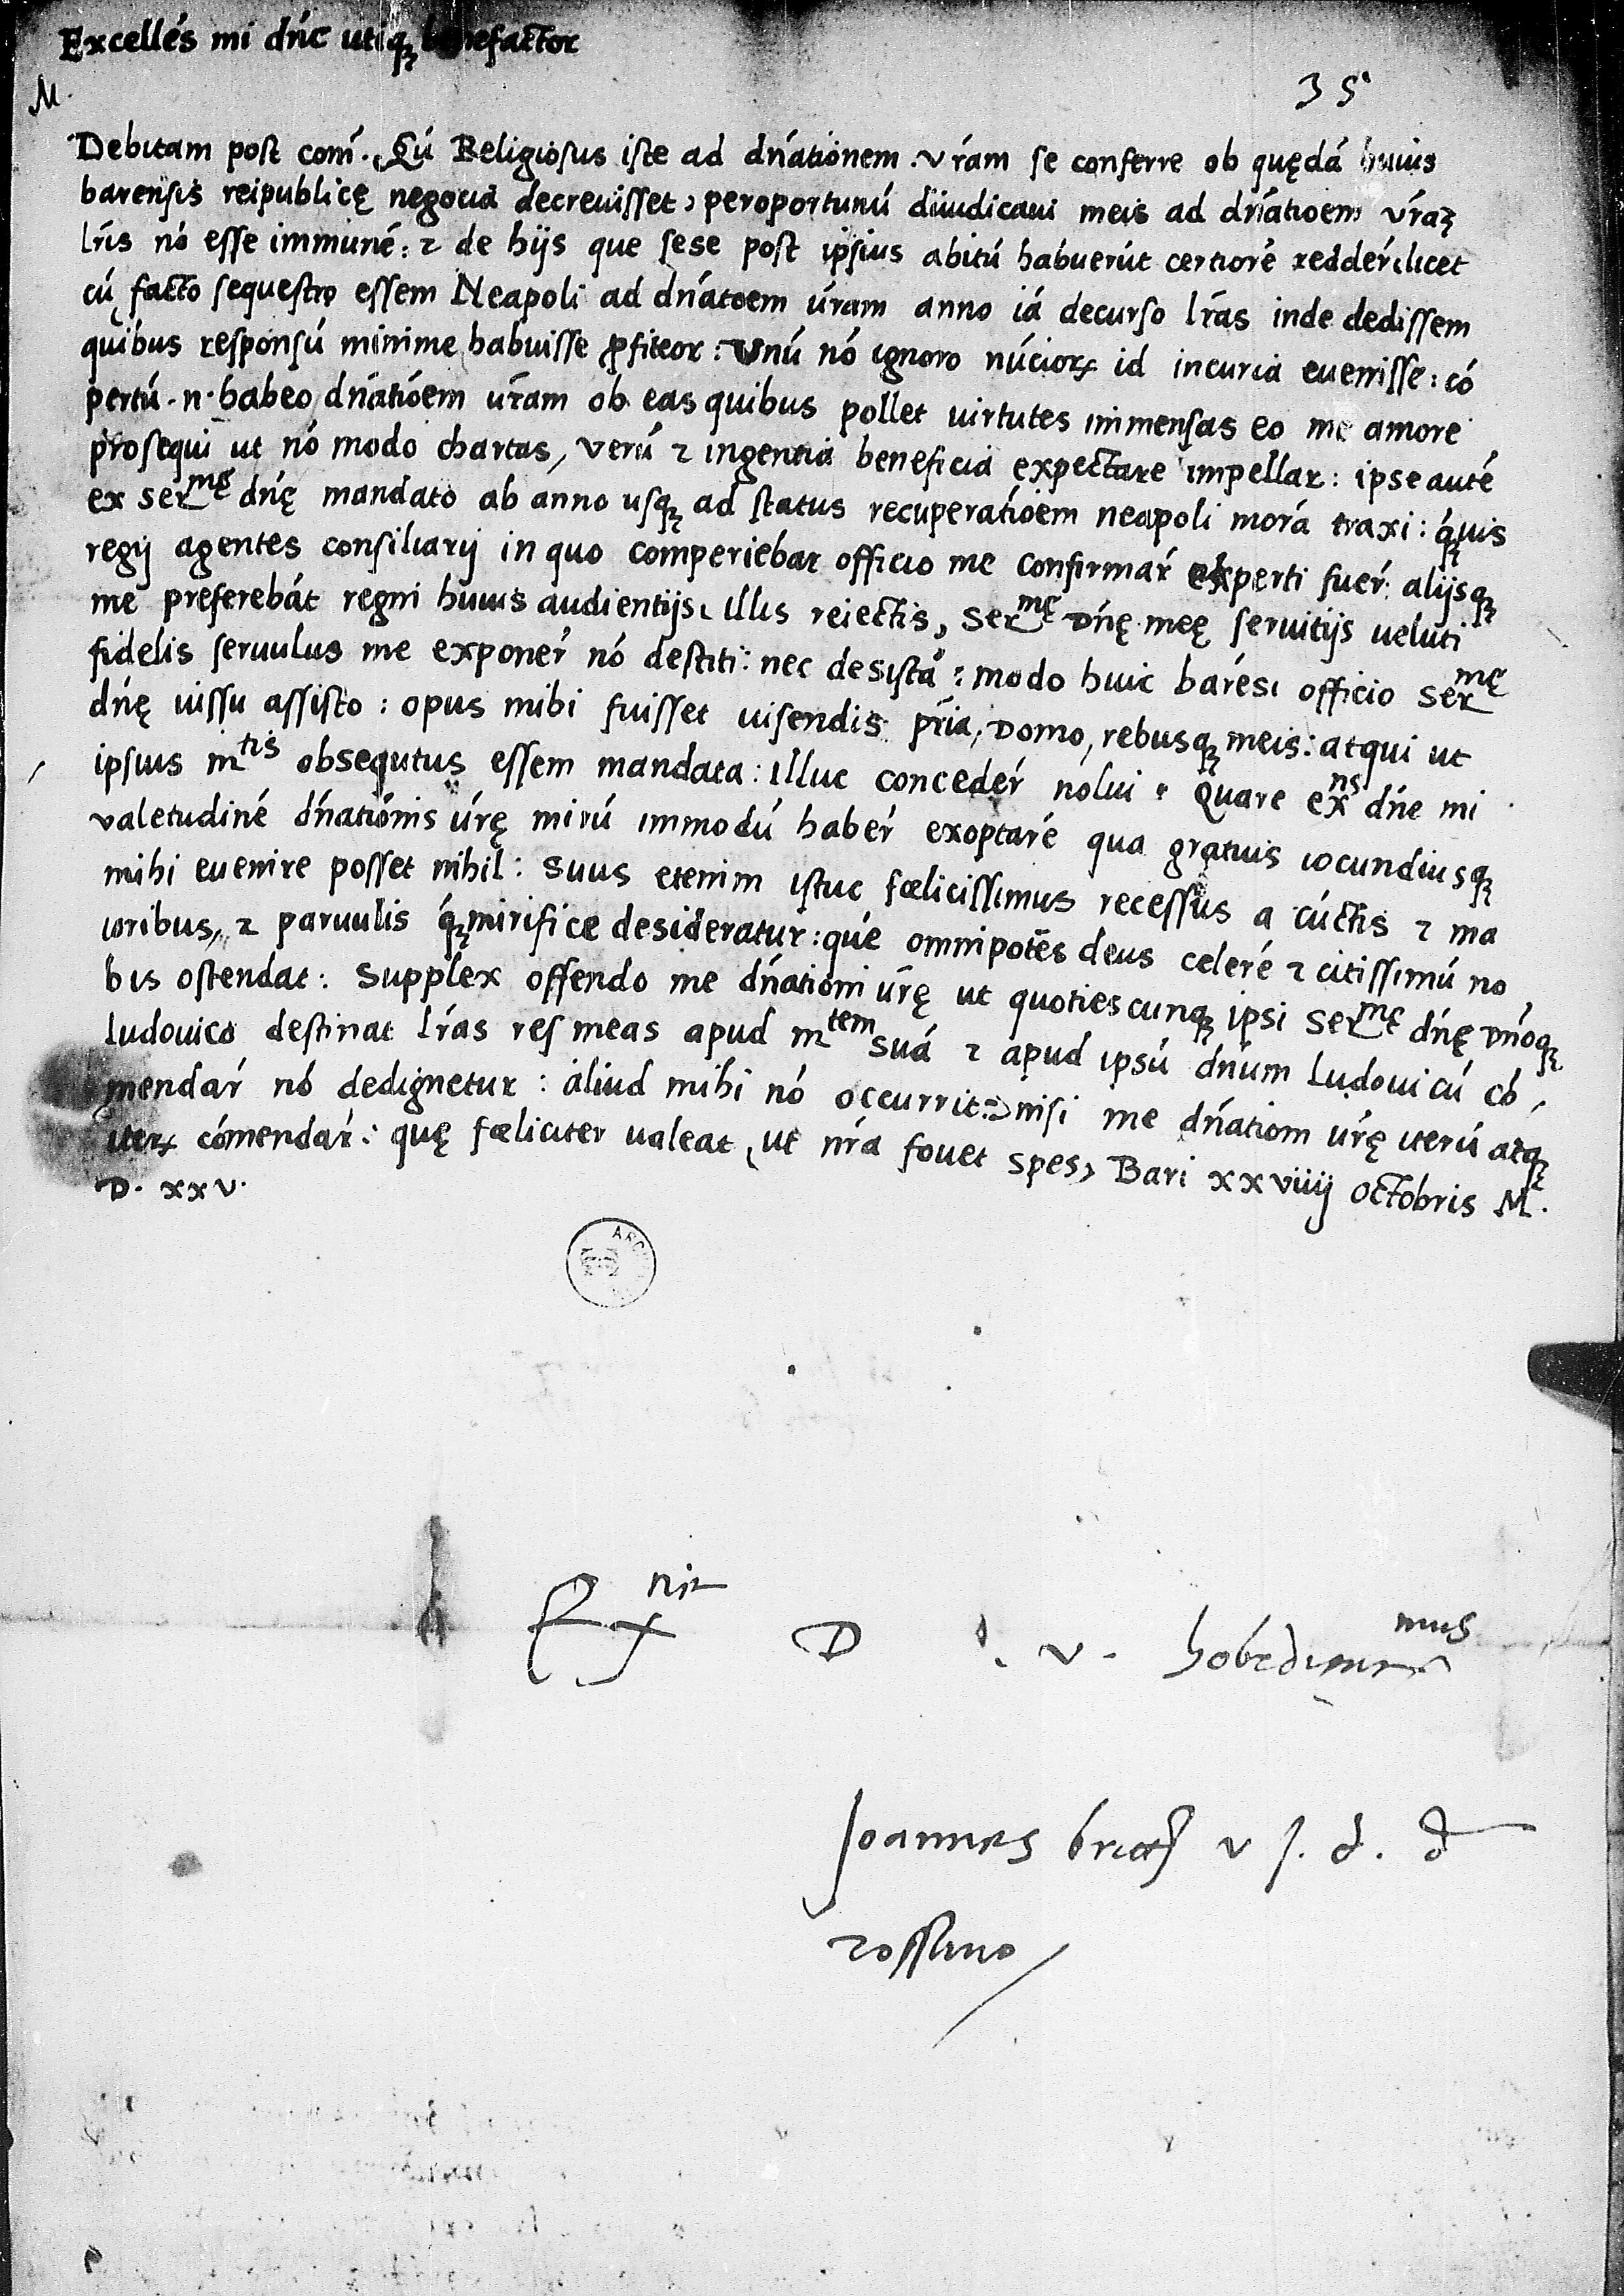 Excellés mi dńe utiqꝫ benefactor
M.
35
Debitam post com̃. Cú Religiosus iste ad dńationem .vŕam se conferre ob quędá huius
barensis reipublicę negocia decreuisset, peroportunú diiudicaui meis ad dńatioem vŕaꝫ
lŕis nó esse immuné: ⁊ de hijs que sese post ipsius abitú habuerút certioré reddeŕ, licet
cú facto sequestro essem Neapoli ad dńatoem úram anno iá decurso lŕas inde dedissem
quibus responsú minime habuisse ꝓfiteor: Unú nó ignoro núcioꝝ id incuria euenisse: có
pertú .n. habeo dńatióem úram ob eas quibus pollet uirtutes immensas eo me amore
prosequi ut nó modo chartas, verú ⁊ ingentia beneficia expectare impellar: ipse auté
ex serᵐᵉ̨ dńę mandato ab anno usqꝫ ad status recuperatióem neapoli morá traxi: ꝗ́uis
regij agentes consiliarij in quo comperiebar officio me confirmaŕ experti fueŕ: alijsqꝫ
me preferebát regni huius audientijs, illis reiectis, serᵐᵉ̨ Dńę meę seruitijs ueluti
fidelis seruulus me exponeŕ nó destiti: nec desistá: modo huic barési officio serᵐᵉ̨
dńę iussu assisto: opus mihi fuisset uisendis pŕia, Domo, rebusqꝫ meis: atqui ut
ipsius mᵗⁱˢ obsequtus essem mandata: illuc concedeŕ nolui. Quare exⁿˢ dńe mi
valetudiné dńatiónis úrę mirú immodú habeŕ exoptaré qua gratius iocundiusqꝫ
mihi euenire posset nihil: suus etenim istuc fœlicissimus recessus a cúctis ⁊ ma
ioribus, ⁊ paruulis ꝗ́ꝫ mirifice desideratur: qué omnipotẽs deus celeré ⁊ citissimú no
bis ostendat: supplex offendo me dńationi úrę ut quotiescunqꝫ ipsi serᵐᵉ̨ dńę Dńoqꝫ
ludouico destinat lŕas res meas apud mᵗᵉᵐ suá ⁊ apud ipsú dńum ludouicú có
mendaŕ nó dedignetur: aliud mihi nó occurrit: nisi me dńationi úrę iterú atqꝫ
iteꝝ cómendaŕ: quę fœliciter ualeat, ut nŕa fouet spes, Bari xxviiij octobris M.
D. xxv.
ARC
Exⁿⁱˢ D. v. hobedientᵐᵘˢ
Joannes v J. d. d
rossano